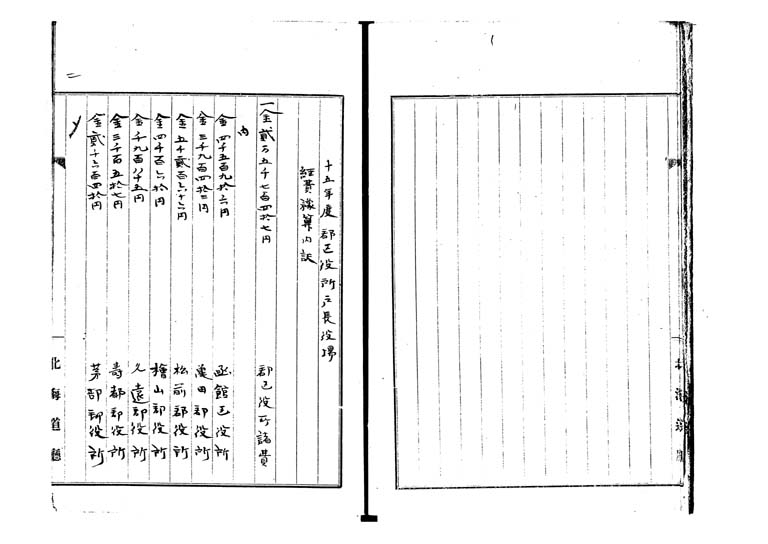 十五年度郡区役所戸長役場
経費豫算内訳
一金貳万五千七百四拾七円 郡区役所諸費
内
金四千五百九拾六円 函館区役所
金三千九百四拾三円 亀田郡役所
金五千貳百六十六円 松前郡役所
金四千百六拾円 檜山郡役所
金千九百八十五円 久遠郡役所
金三千百五拾七円 寿都郡役所
金貳千六百四拾円 茅部郡役所
二
北海道廳